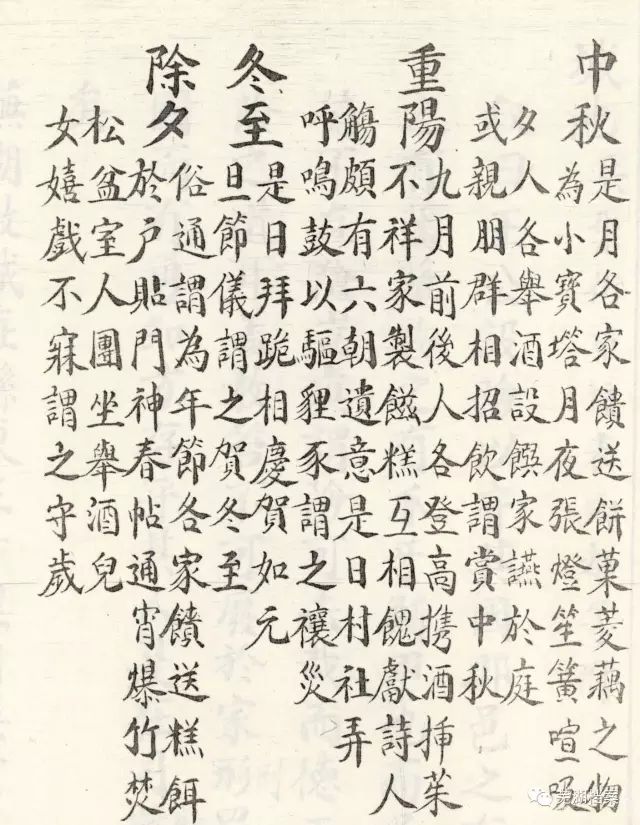 中秋
是月各家饋送餅菓菱藕之物
為小寶塔月夜張燈笙簧喧吸
夕人各舉酒設饌家讌於庭
或親朋群相招飲謂賞中秋
重陽
九月前後人各登高携酒挿茱
不祥家製糕互相餽獻詩人
觴頗有六朝遺意是日村社弄
呼鳴鼓以驅貍豕謂之禳災
冬至
是日拜跪相慶賀如元
旦節儀謂之賀冬至
除夕
俗通謂為年節各家饋送糕餌
於戶貼門神春帖通宵爆竹焚
松盆室人團坐舉酒兒
女嬉戲不寐謂之守歲
芜湖档案